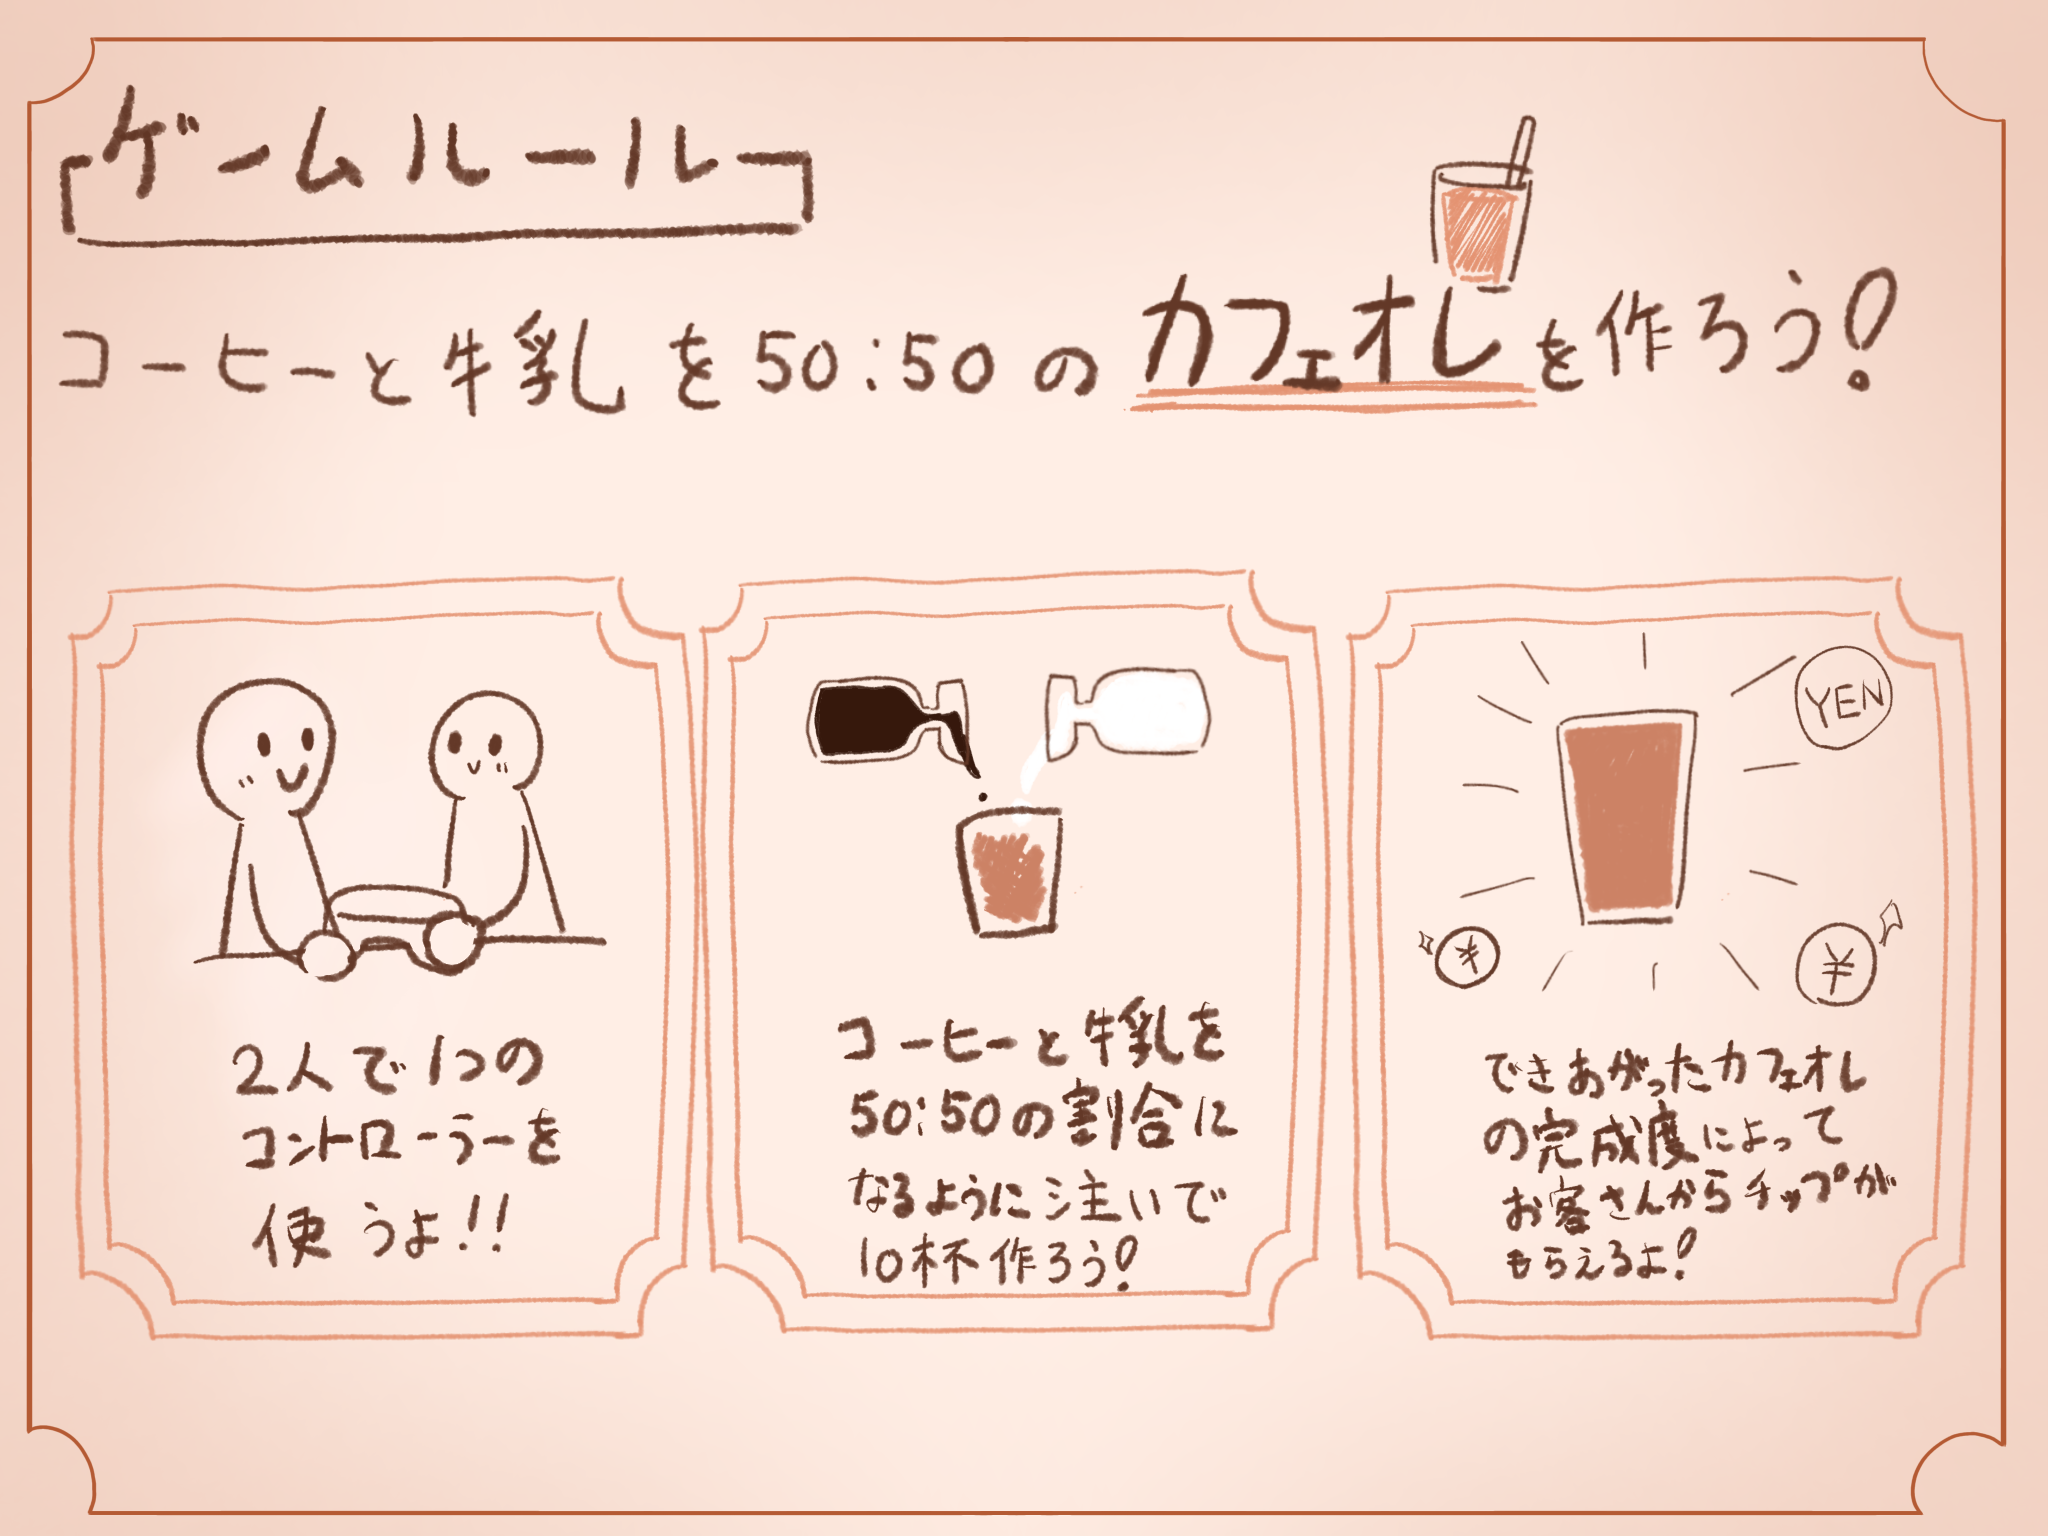 ゲームルール
コーヒーと牛乳を50:50のカフェオレを作ろう!
2人で1つの
コントローラーを
使うよ!!
コーヒーと牛乳を
50:50の割合に
なるように注いで
10杯作ろう!
YEN
¥
¥
できあがったカフェオレ
の完成度によって
お客さんからチップが
もらえるよ!